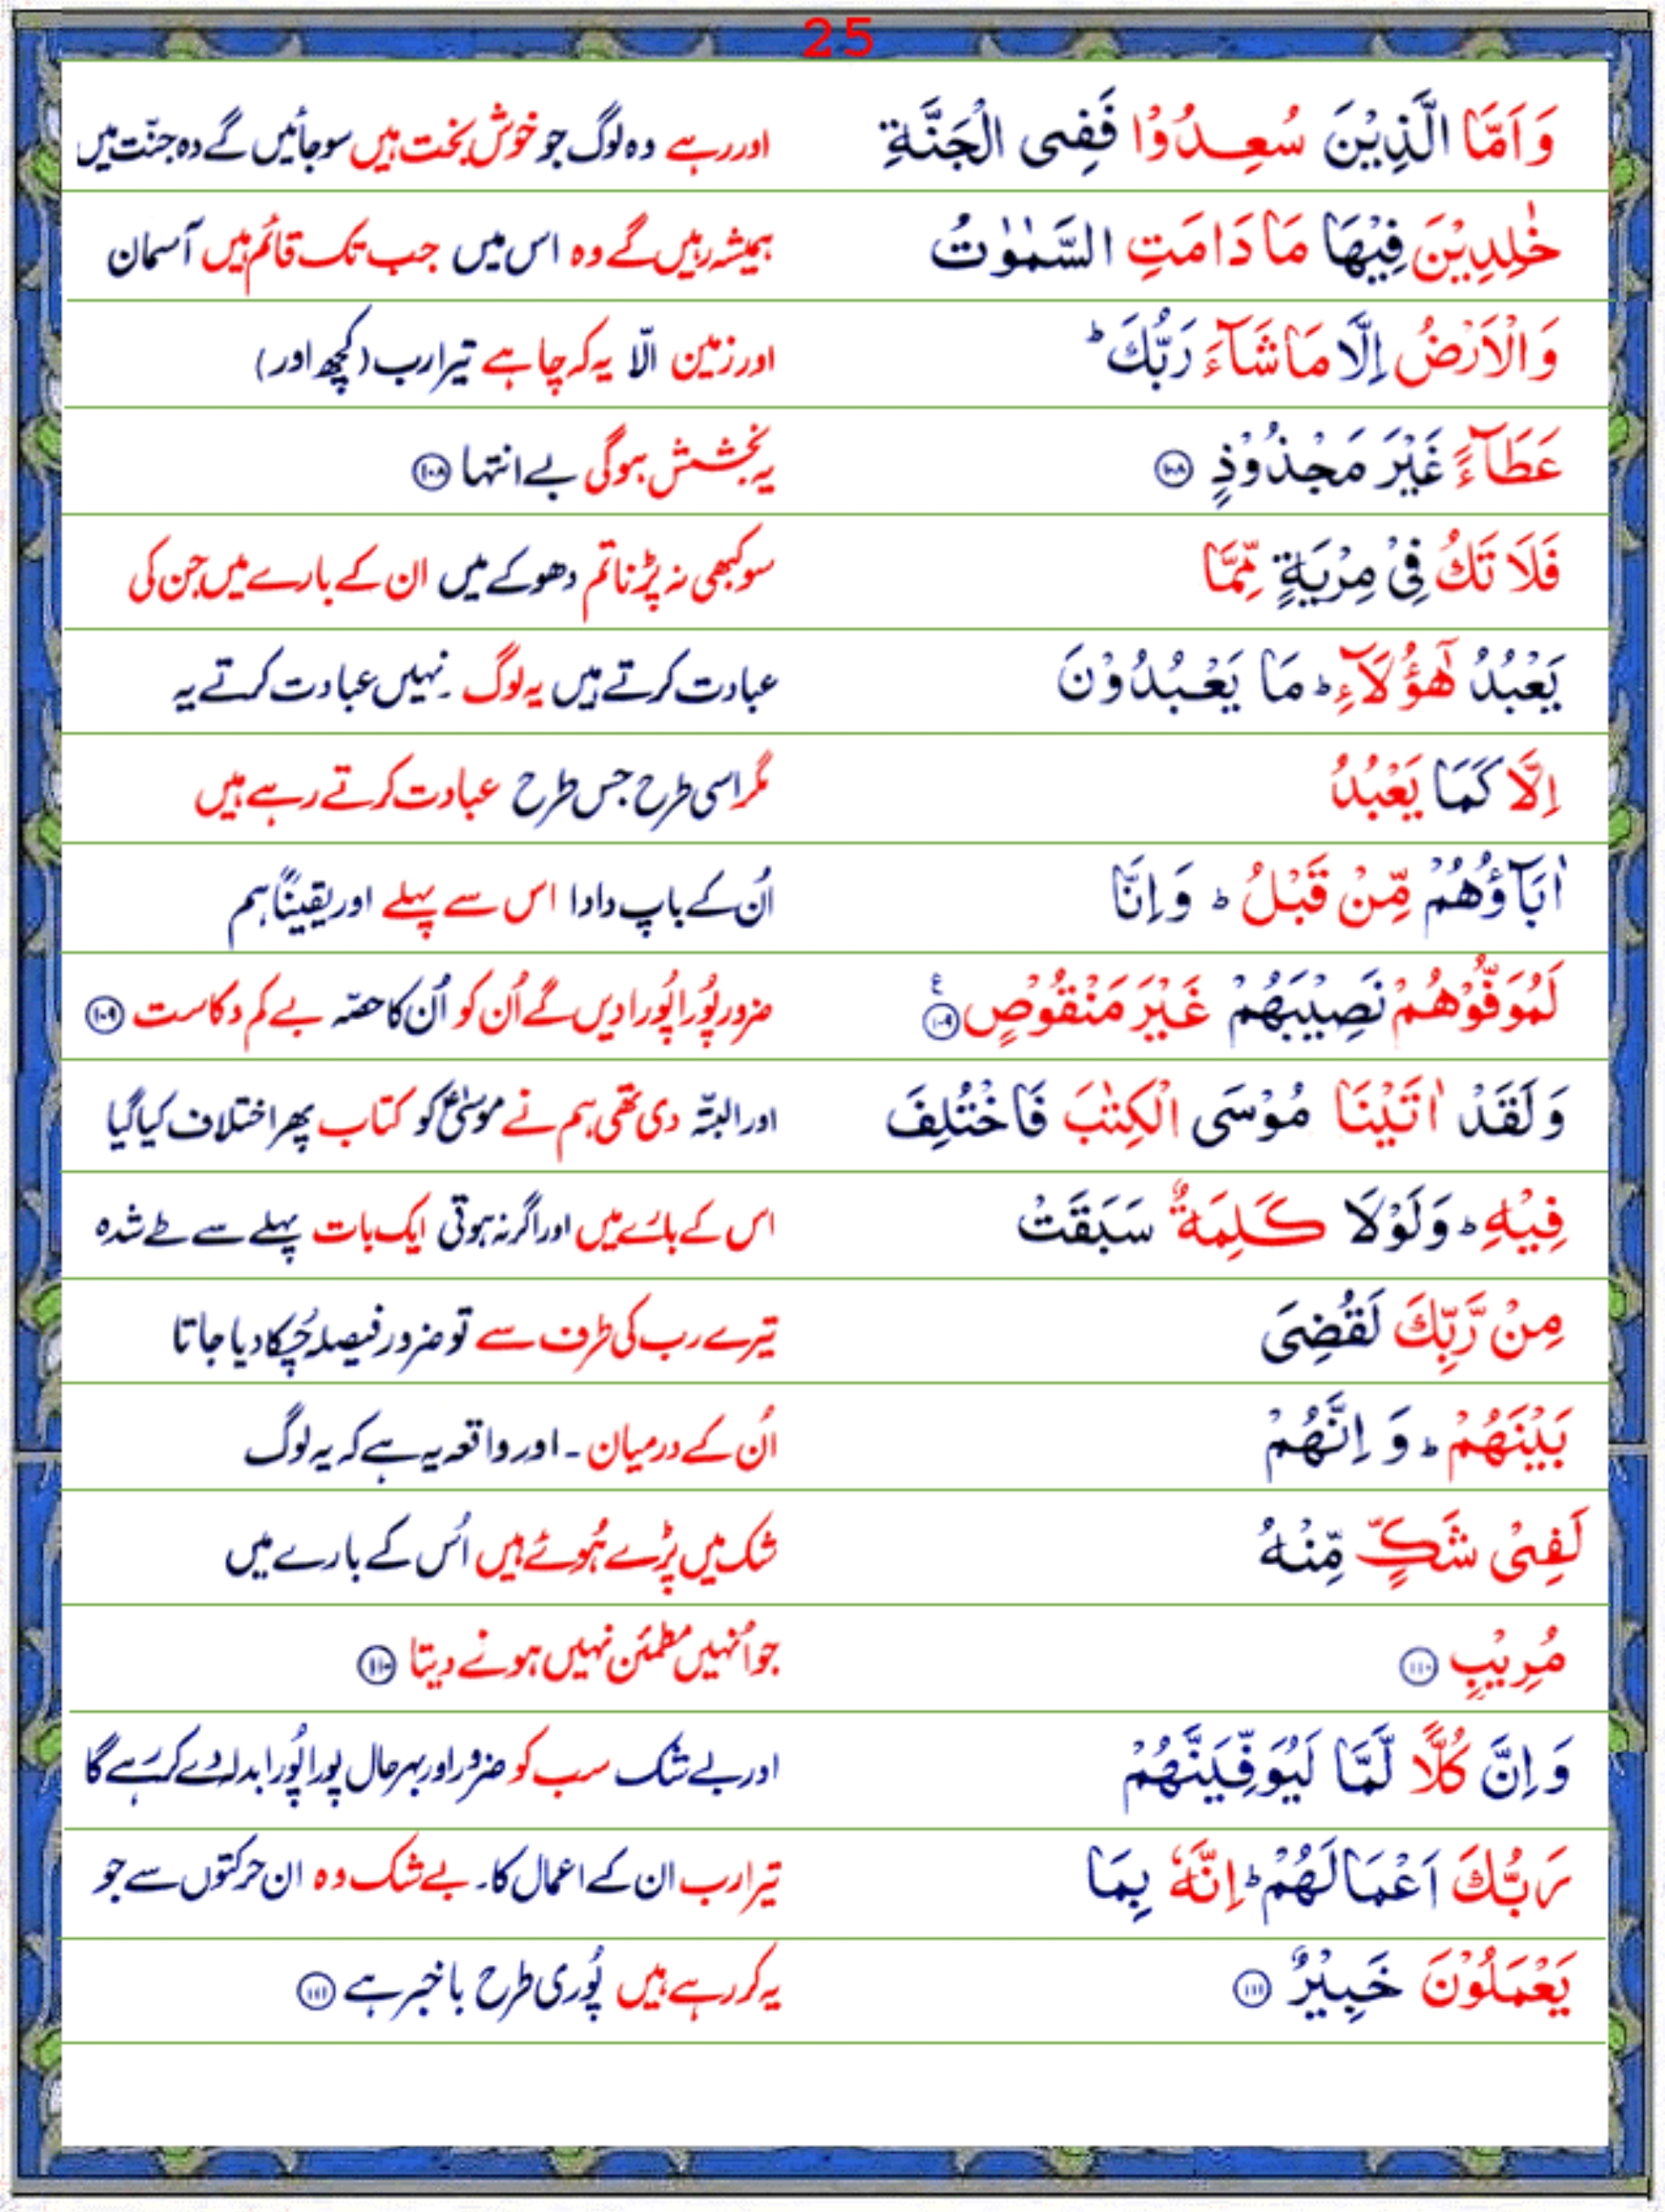 25
وَاَمَّا الَّذِيْنَ سُعِدُوْا فَفِى الْجَنَّةِ اور رہے وہ لوگ جو خوش بخت ہیں سو جائیں گے وہ جنّت میں
خٰلِدِيْنَ فِيْهَا مَا دَامَتِ السَّمٰوٰتُ ہمیشہ رہیں گے وہ اس میں جب تک قائم ہیں آسمان
وَالْاَرْضُ اِلَّا مَا شَآءَ رَبُّكَ ؕ اور زمین الّا یہ کہ چاہے تیرا رب (کچھ اور)
عَطَآءً غَيْرَ مَجْذُوْذٍ ۝۱۰۸ یہ بخشش ہوگی بے انتہا ۝۱۰۸
فَلَا تَكُ فِىْ مِرْيَةٍ مِّمَّا سو کبھی نہ پڑنا تم دھوکے میں ان کے بارے میں جن کی
يَعْبُدُ هٰٓؤُلَآءِ ؕ مَا يَعْبُدُوْنَ عبادت کرتے ہیں یہ لوگ ۔ نہیں عبادت کرتے یہ
اِلَّا كَمَا يَعْبُدُ مگر اسی طرح جس طرح عبادت کرتے رہے ہیں
اٰبَآؤُهُمْ مِّنْ قَبْلُ ؕ وَاِنَّا اُن کے باپ دادا اس سے پہلے اور یقیناً ہم
لَمُوَفُّوْهُمْ نَصِيْبَهُمْ غَيْرَ مَنْقُوْصٍ ۝۱۰۹ ع ضرور پُورا پُورا دیں گے اُن کو اُن کا حصّہ بے کم و کاست ۝۱۰۹
وَلَقَدْ اٰتَيْنَا مُوْسَى الْكِتٰبَ فَاخْتُلِفَ اور البتّہ دی تھی ہم نے موسیٰؑ کو کتاب پھر اختلاف کیا گیا
فِيْهِ ؕ وَلَوْلَا كَلِمَةٌ سَبَقَتْ اس کے بارے میں اور اگر نہ ہوتی ایک بات پہلے سے طے شدہ
مِنْ رَّبِّكَ لَقُضِىَ تیرے رب کی طرف سے تو ضرور فیصلہ چُکا دیا جاتا
بَيْنَهُمْ ؕ وَ اِنَّهُمْ اُن کے درمیان ۔ اور واقعہ یہ ہے کہ یہ لوگ
لَفِىْ شَكٍّ مِّنْهُ شک میں پڑے ہُوئے ہیں اُس کے بارے میں
مُرِيْبٍ ۝۱۱۰ جو اُنہیں مطمئن نہیں ہونے دیتا ۝۱۱۰
وَاِنَّ كُلًّا لَّمَّا لَيُوَفِّيَنَّهُمْ اور بے شک سب کو ضرور اور بہرحال پورا پُورا بدلہ دے کر رہے گا
رَبُّكَ اَعْمَالَهُمْ ؕ اِنَّهٗ بِمَا تیرا رب ان کے اعمال کا۔ بے شک وہ ان حرکتوں سے جو
يَعْمَلُوْنَ خَبِيْرٌ ۝۱۱۱ یہ کر رہے ہیں پُوری طرح با خبر ہے ۝۱۱۱